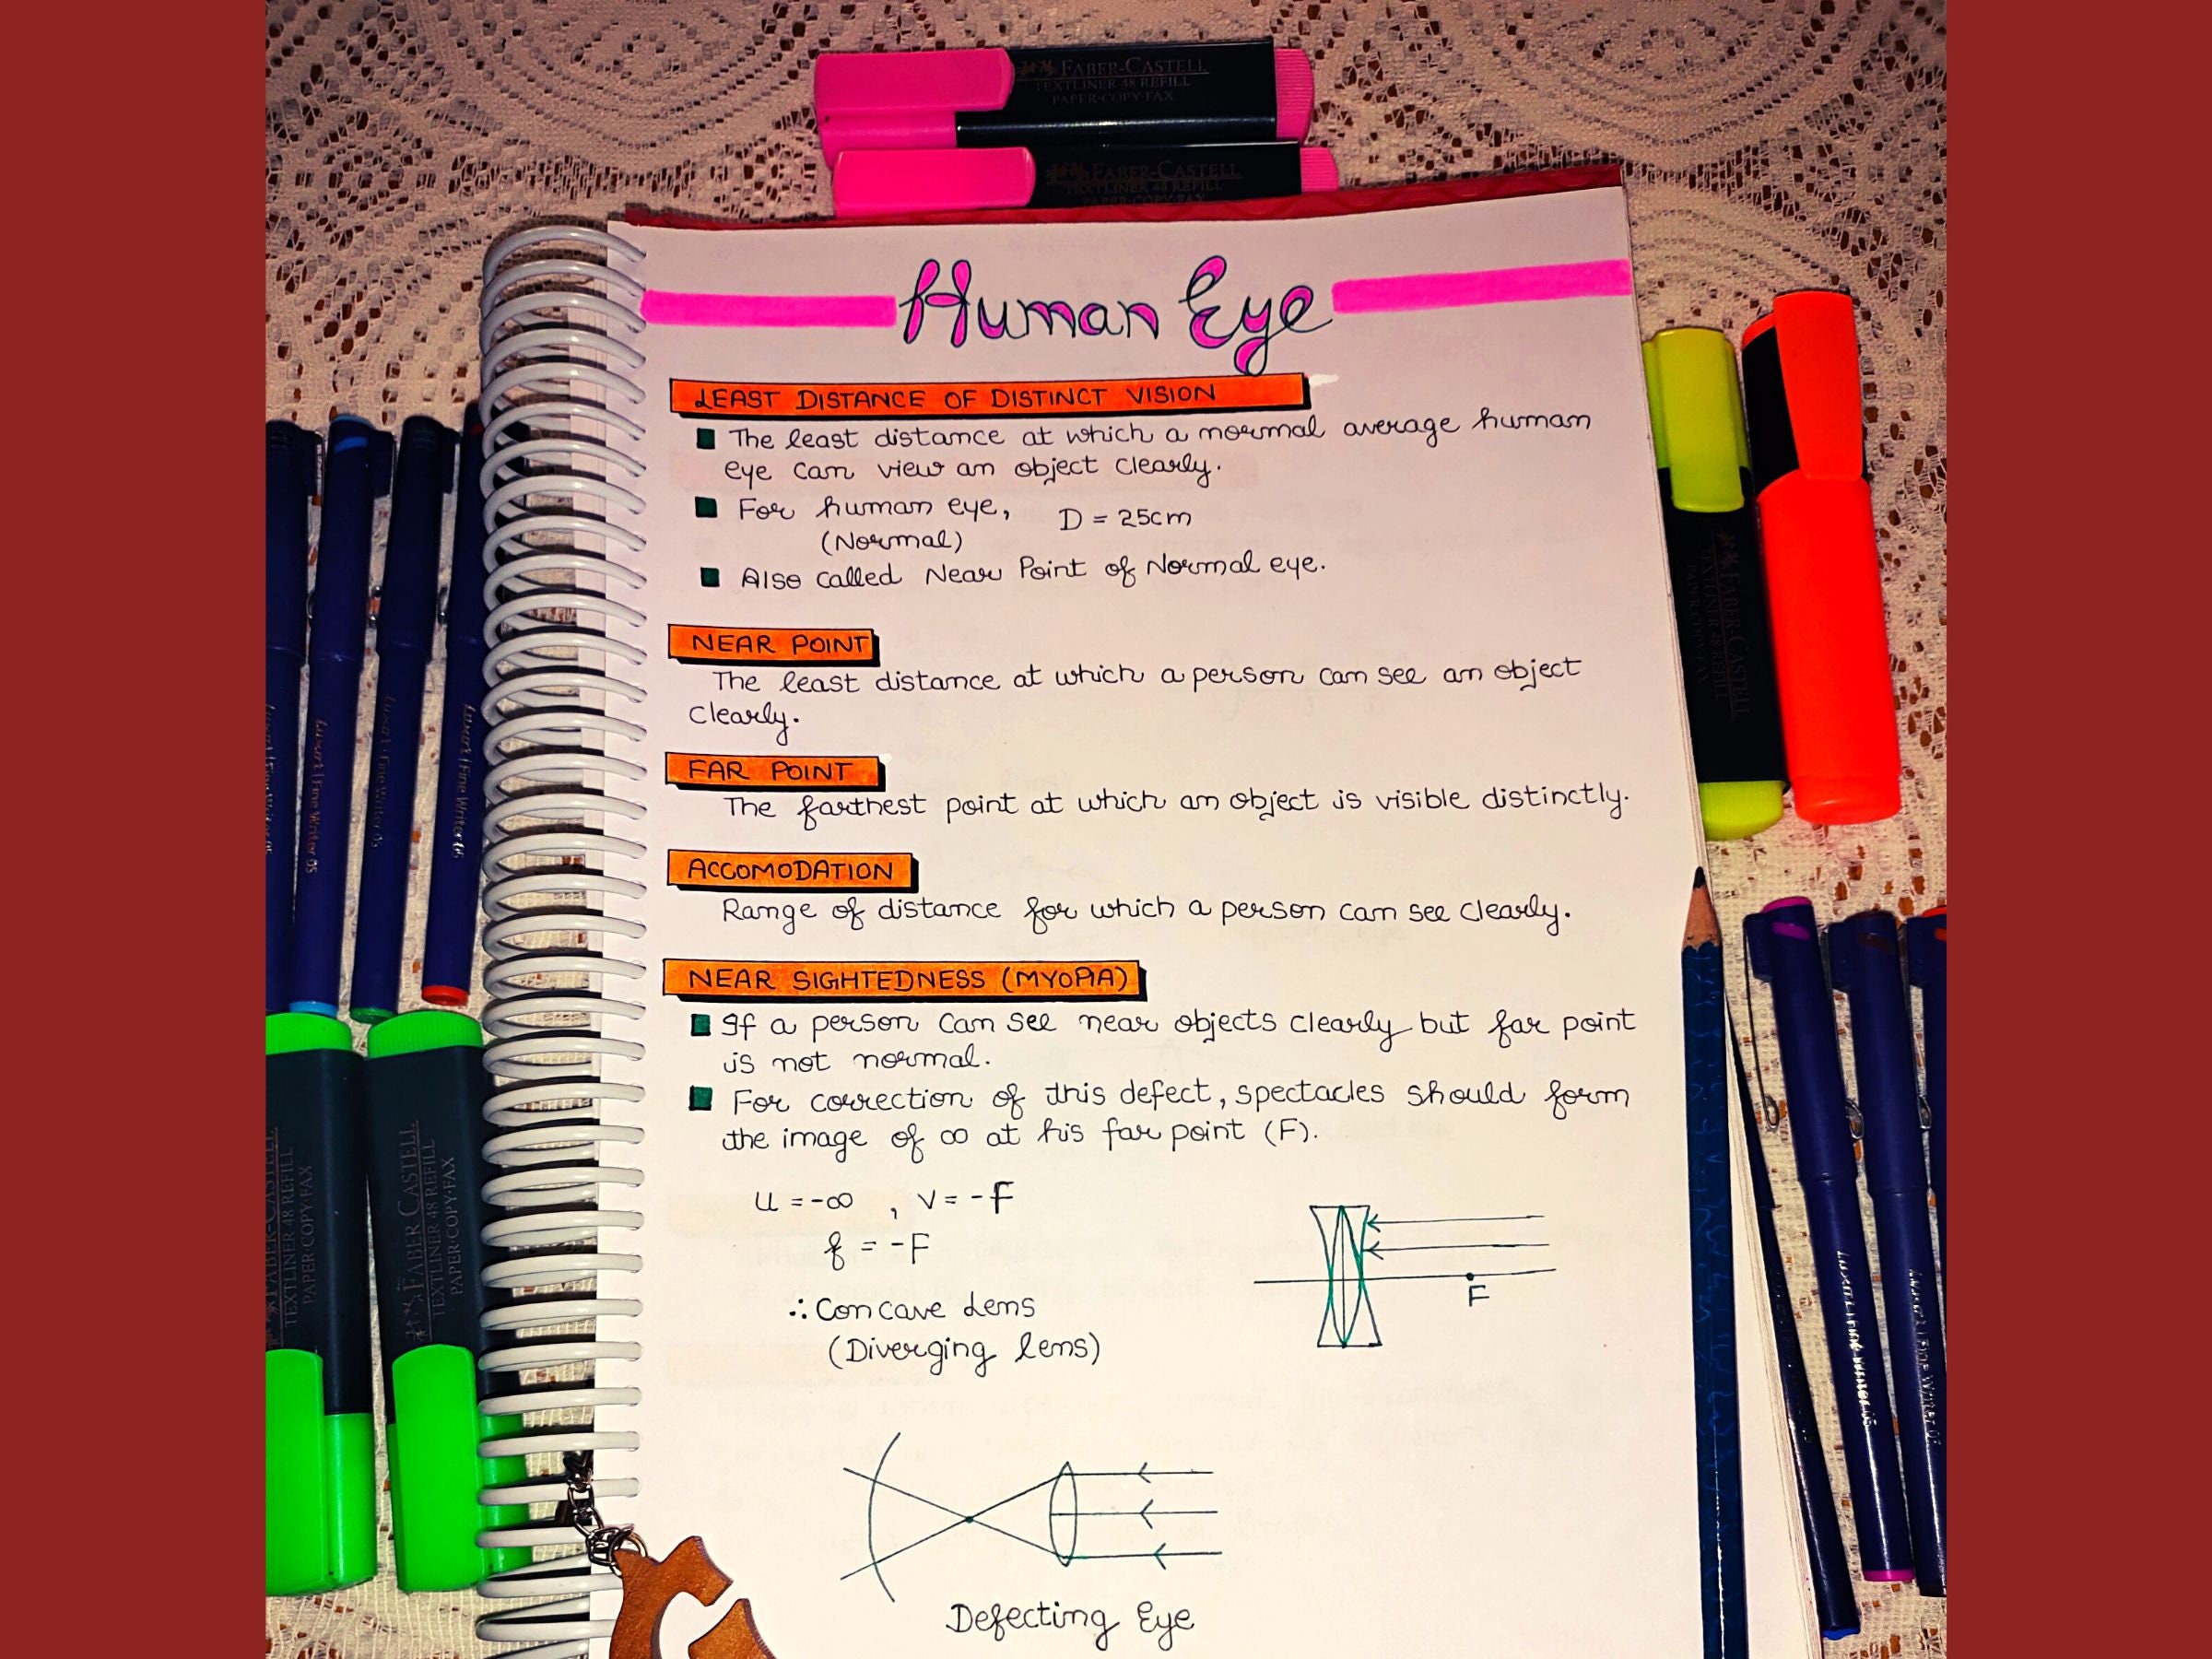 FABER-CASTELL
TEXTLINER 48 REFILL
PAPER·COPY·FAX
FABER-CASTELL
TEXTLINER 48 REFILL
PAPER·COPY·FAX
Human Eye
LEAST DISTANCE OF DISTINCT VISION
The least distance at which a normal average human
eye can view an object clearly.
For human eye, D = 25cm
(Normal)
Also called Near Point of Normal eye.
NEAR POINT
The least distance at which a person can see an object
clearly.
FAR POINT
The farthest point at which an object is visible distinctly.
ACCOMODATION
Range of distance for which a person can see clearly.
NEAR SIGHTEDNESS (MYOPIA)
If a person can see near objects clearly but far point
is not normal.
For correction of this defect, spectacles should form
the image of ∞ at his far point (F).
u = -∞ , v = -F
f = -F
∴ Concave Lens
(Diverging lens)
F
Defecting Eye
Luxor | Fine Writer 05
Luxor | Fine Writer 05
Luxor | Fine Writer 05
FABER-CASTELL
TEXTLINER 48 REFILL
PAPER·COPY·FAX
FABER-CASTELL
TEXTLINER 48 REFILL
PAPER·COPY·FAX
FABER-CASTELL
TEXTLINER 48 REFILL
PAPER·COPY·FAX
Luxor | Fine Writer 05
Luxor | Fine Writer 05